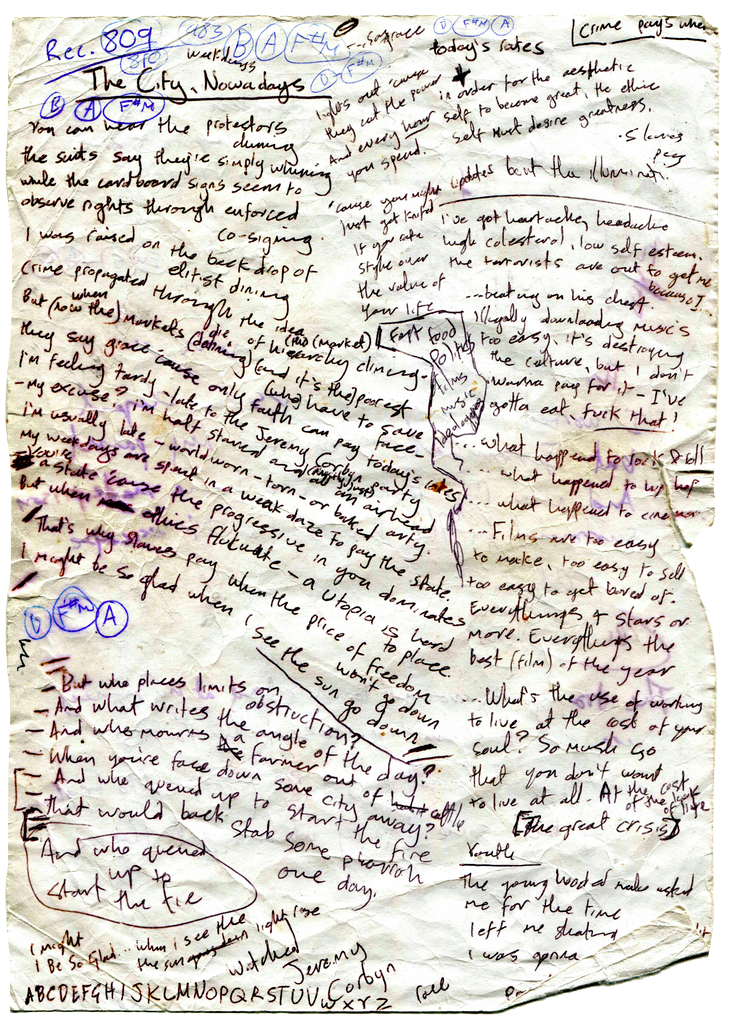 Rec. 809
810
983
B A F#M
D F#M
weekdays
The City, Nowadays
B A F#M
You can hear the protectors
the suits say they're simply whining
while the cardboard signs seem to
observe rights through enforced
co-signing.
I was raised on the backdrop of
elitist dining
Crime propagated through the idea
of hierarchy climing-
But when (now the) markets (defining) die (and it's the) poorest
(market)
they say grace cause only (who) have to save
face-
faith can pay today's rates
I'm feeling tardy, late to the Jeremy Corbyn party
-My excuse? I'm half starved and an airhead
I'm usually late - world worn - torn - or baked arty.
My weekdays are spent in a weak-daze to pay the state.
-You're a state cause the progressive in you dominates
But when ethics fluctuate - a Utopia is hard
to place.
That's why slaves pay when the price of freedom
won't go down
I might be so glad when I see the sun go down
D F#M A
- But who places limits on
obstruction?
- And what writes the angle of the day?
- And who mourns a farmer out of cattle
- When you're face down some city away?
- And who queued up to start the fire
that would back stab some pharaoh
one day.
And who queued
up to
start the fire
I might
I Be So Glad... when I see the
the sun light rise
watched
Jeremy
Corbyn
ABCDEFGHIJKLMNOPQRSTUV
WXYZ
D F#M A
today's rates
Crime pays when
lights out 'cause
they cut the power
And every hour
you spend.
in order for the aesthetic
self to become great, the ethic
self must desire greatness.
. Slaves
pay
'cause you might
just get knifed
if you rate
style over
the value of
your life
updates bout the illuminati.
I've got heartache, headache
high colesterol, low self esteem.
the terrorists are out to get me
because I.
...beating on his chest.
Illegally downloading music's
too easy, it's destroying
the culture, but I don't
wanna pay for it - I've
gotta eat, fuck that!
Fast food
Politics
films
music
...what happened to rock & roll
...what happened to hip hop
...what happened to cinema
...Films are too easy
to make, too easy to sell
too easy to get bored of.
Everythings 4 stars or
more. Everythings the
best (film) of the year
...What's the use of working
to live at the cost of your
soul? So much so
that you don't want
to live at all. At the cost
of the
life
[The great crisis]
Youth
The young hooded male asked
me for the time
left me
I was gonna